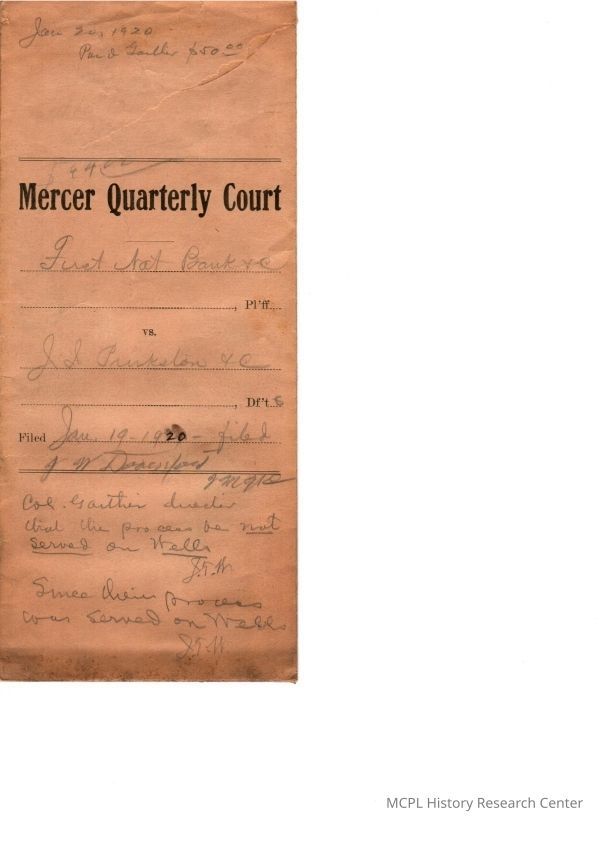 Jan 20, 1920
Paid Gaither $50.00
Mercer Quarterly Court
First Nat Bank &C
, Pl'ff....
vs.
J. I. Pinkston &C
, Df't.s
Filed Jan. 19 - 1920 - filed
J W Davenport
Col. Gaither director
that the process be not
served on Wells
J.T.W.
Since then process
was served on Wells
J.T.W.
MCPL History Research Center